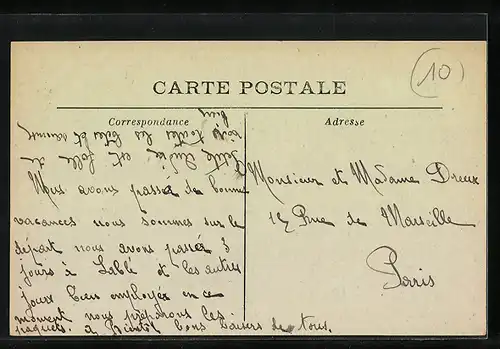 (10)
CARTE POSTALE
Correspondance
Adresse
Nous avons passé de bonne
vacances nous sommes sur le
départ nous avons passé 3
jours à Sablé et les autres
jour bien employés en ce
moment nous préparons les
paquets. à bientôt bons baisers de tous.
Petite Andrée est folle de
voir toutes les bêtes et
bien
Monsieur et Madame Dreux
12 Rue de Marseille
Paris